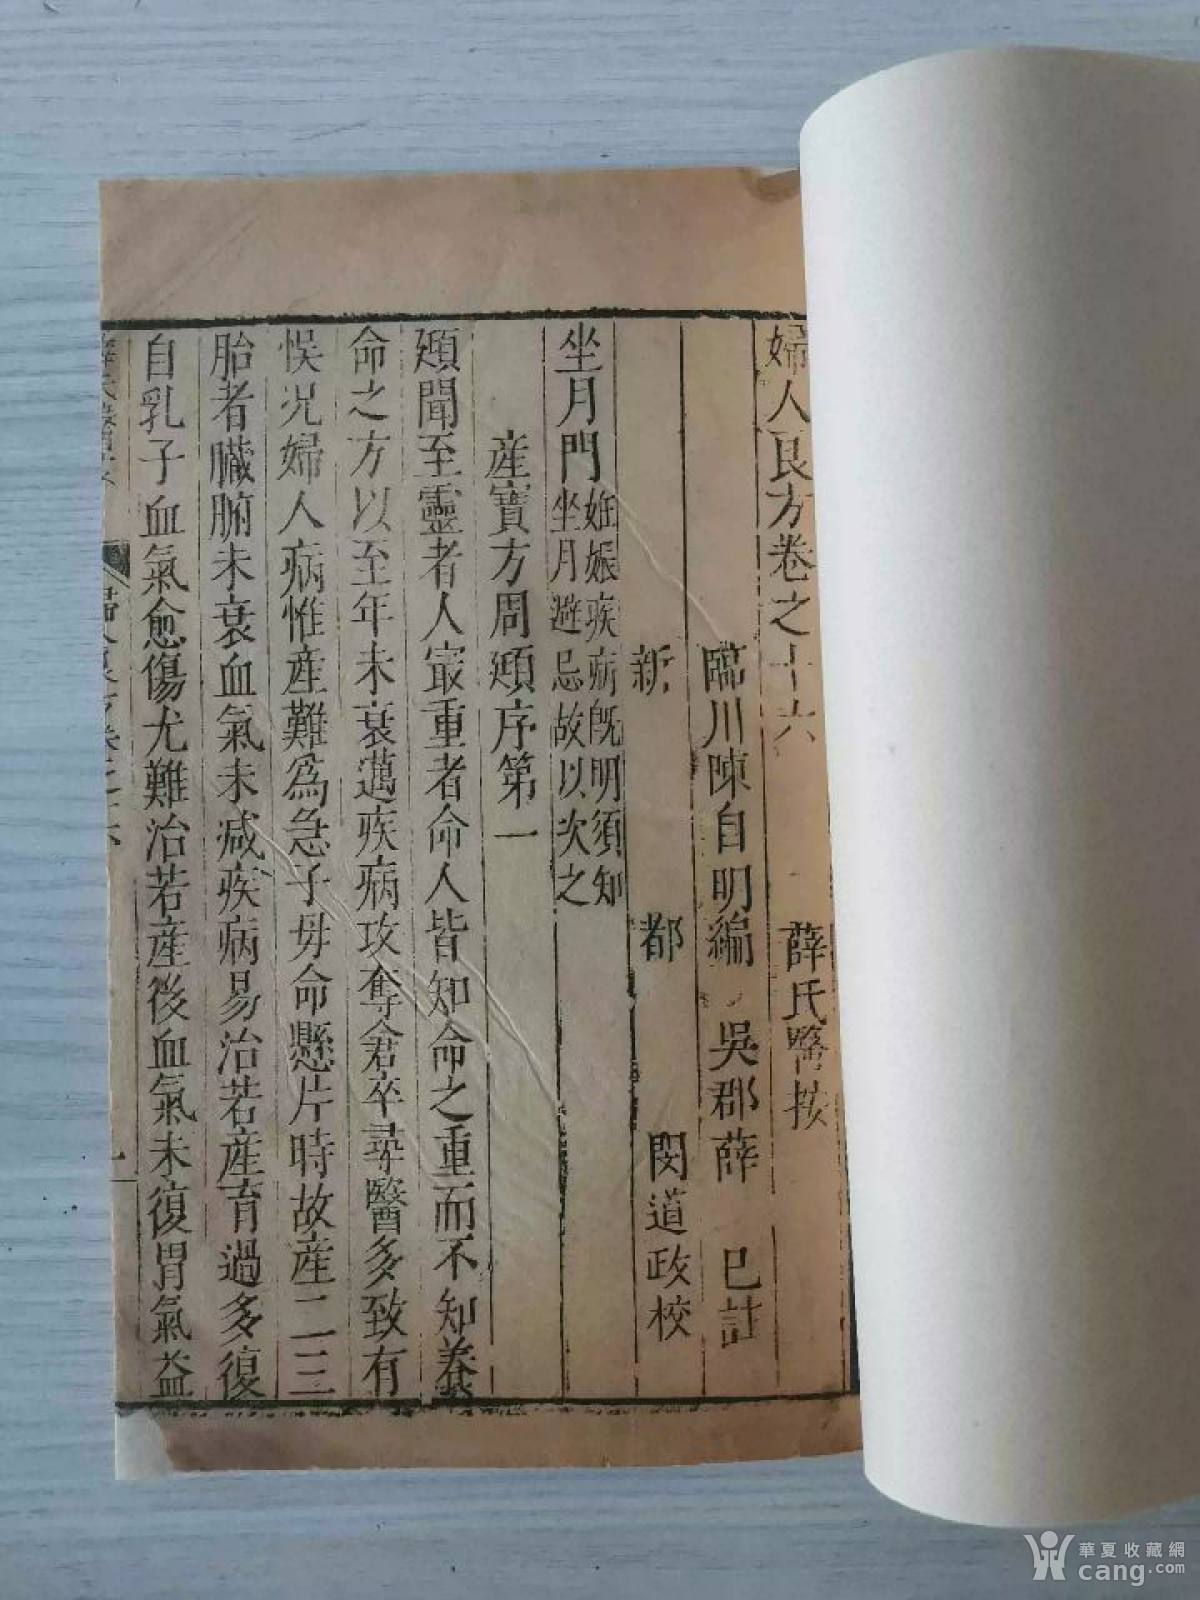 婦人良方卷之十六 薛氏醫按
臨川陳自明編 吳郡薛 已註
新都 閔道政校
坐月門 妊娠疾病旣明須知
坐月避忌故以次之
産寶方周頲序第一
頲聞至靈者人寂重者命人皆知命之重而不知養
命之方以至年未衰邁疾病攻奪倉卒尋醫多致有
悞况婦人病惟産難爲急子母命懸片時故産二三
胎者臟腑未衰血氣未减疾病易治若産育過多復
自乳子血氣愈傷尤難治若産後血氣未復胃氣益
華夏收藏網
cang.com